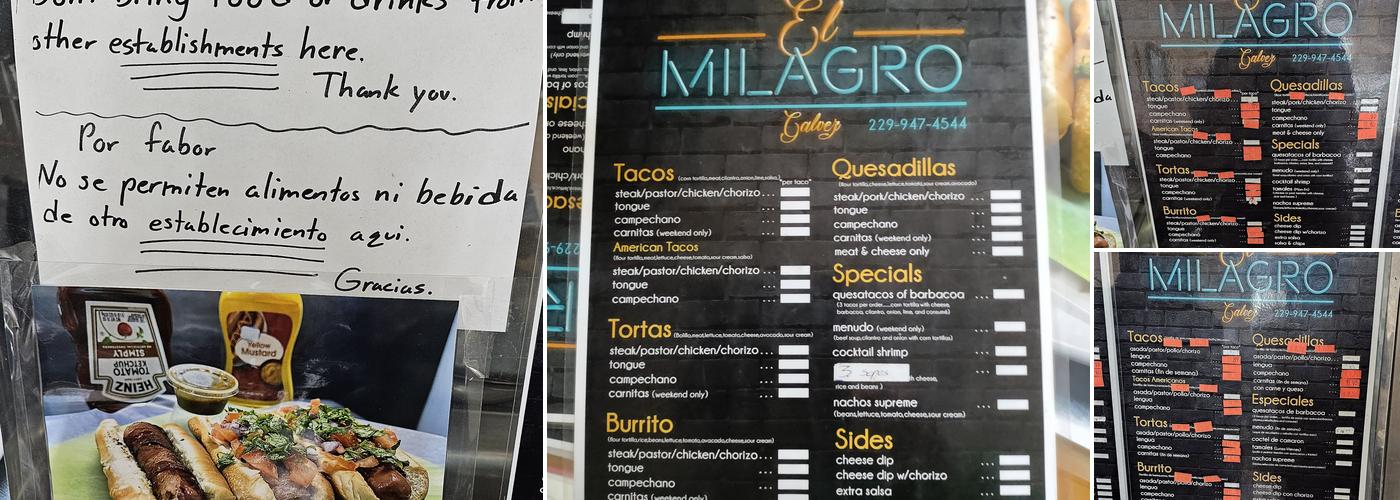 other establishments here.
Thank you.
Por fabor
No se permiten alimentos ni bebida
de otro establecimiento aqui.
Gracias.
HEINZ
TOMATO
KETCHUP
SIMPLY
Yellow
Mustard
El
MILAGRO
Galvez 229-947-4544
Tacos (corn tortilla,meat,cilantro,onion,lime,salsa) "per taco"
steak/pastor/chicken/chorizo...
tongue ...
campechano ...
carnitas (weekend only) ...
American Tacos
(flour tortilla,meat,lettuce,cheese,tomato,sour cream,salsa)
steak/pastor/chicken/chorizo ...
tongue ...
campechano ...
Tortas (Bolillo,meat,lettuce,tomato,cheese,avocado,sour cream)
steak/pastor/chicken/chorizo...
tongue ...
campechano ...
carnitas (weekend only) ...
Burrito
(flour tortilla,rice,beans,lettuce,tomato,cheese,avocado,sour cream)
steak/pastor/chicken/chorizo...
tongue ...
campechano ...
carnitas (weekend only)
Quesadillas
(flour tortilla,cheese,lettuce,tomato,sour cream,avocado)
steak/pork/chicken/chorizo ...
tongue ...
campechano ...
carnitas (weekend only) ...
meat & cheese only ...
Specials
quesatacos of barbacoa ...
(3 tacos per order.....corn tortilla with cheese,
barbacoa, cilantro, onion, lime, and consumé)
menudo (weekend only) ...
(beef soup,cilantro and onion with corn tortillas)
cocktail shrimp ...
3 sopes
rice and beans )
nachos supreme ...
(beans,lettuce,tomato,cheese,sour cream)
Sides
cheese dip ...
cheese dip w/chorizo ...
extra salsa ...
MILAGRO
Galvez 229-947-4544
Tacos "per taco"
steak/pastor/chicken/chorizo
tongue
campechano
carnitas (weekend only)
American Tacos
steak/pastor/chicken/chorizo
tongue
campechano
Tortas
steak/pastor/chicken/chorizo
tongue
campechano
Burrito
steak/pastor/chicken/chorizo
tongue
campechano
carnitas (weekend only)
Quesadillas
steak/pork/chicken/chorizo
tongue
campechano
carnitas (weekend only)
meat & cheese only
Specials
quesatacos of barbacoa
menudo (weekend only)
cocktail shrimp
tamales
nachos supreme
Sides
cheese dip
cheese dip w/chorizo
extra salsa
salsa & chips
MILAGRO
Galvez 229-947-4544
Tacos "per taco"
asada/pastor/pollo/chorizo
lengua
campechano
carnitas (fin de semana)
Tacos Americanos
asada/pastor/pollo/chorizo
lengua
campechano
Tortas
asada/pastor/pollo/chorizo
lengua
campechano
carnitas (fin de semana)
Burrito
asada/pastor/pollo/chorizo
lengua
campechano
Quesadillas
asada/pastor/pollo/chorizo
lengua
campechano
carnitas (fin de semana)
con carne y queso
Especiales
quesatacos de barbacoa
menudo (fin de semana)
coctel de camaron
tamales
nachos supreme
Sides
cheese dip
cheese dip w/chorizo
extra salsa